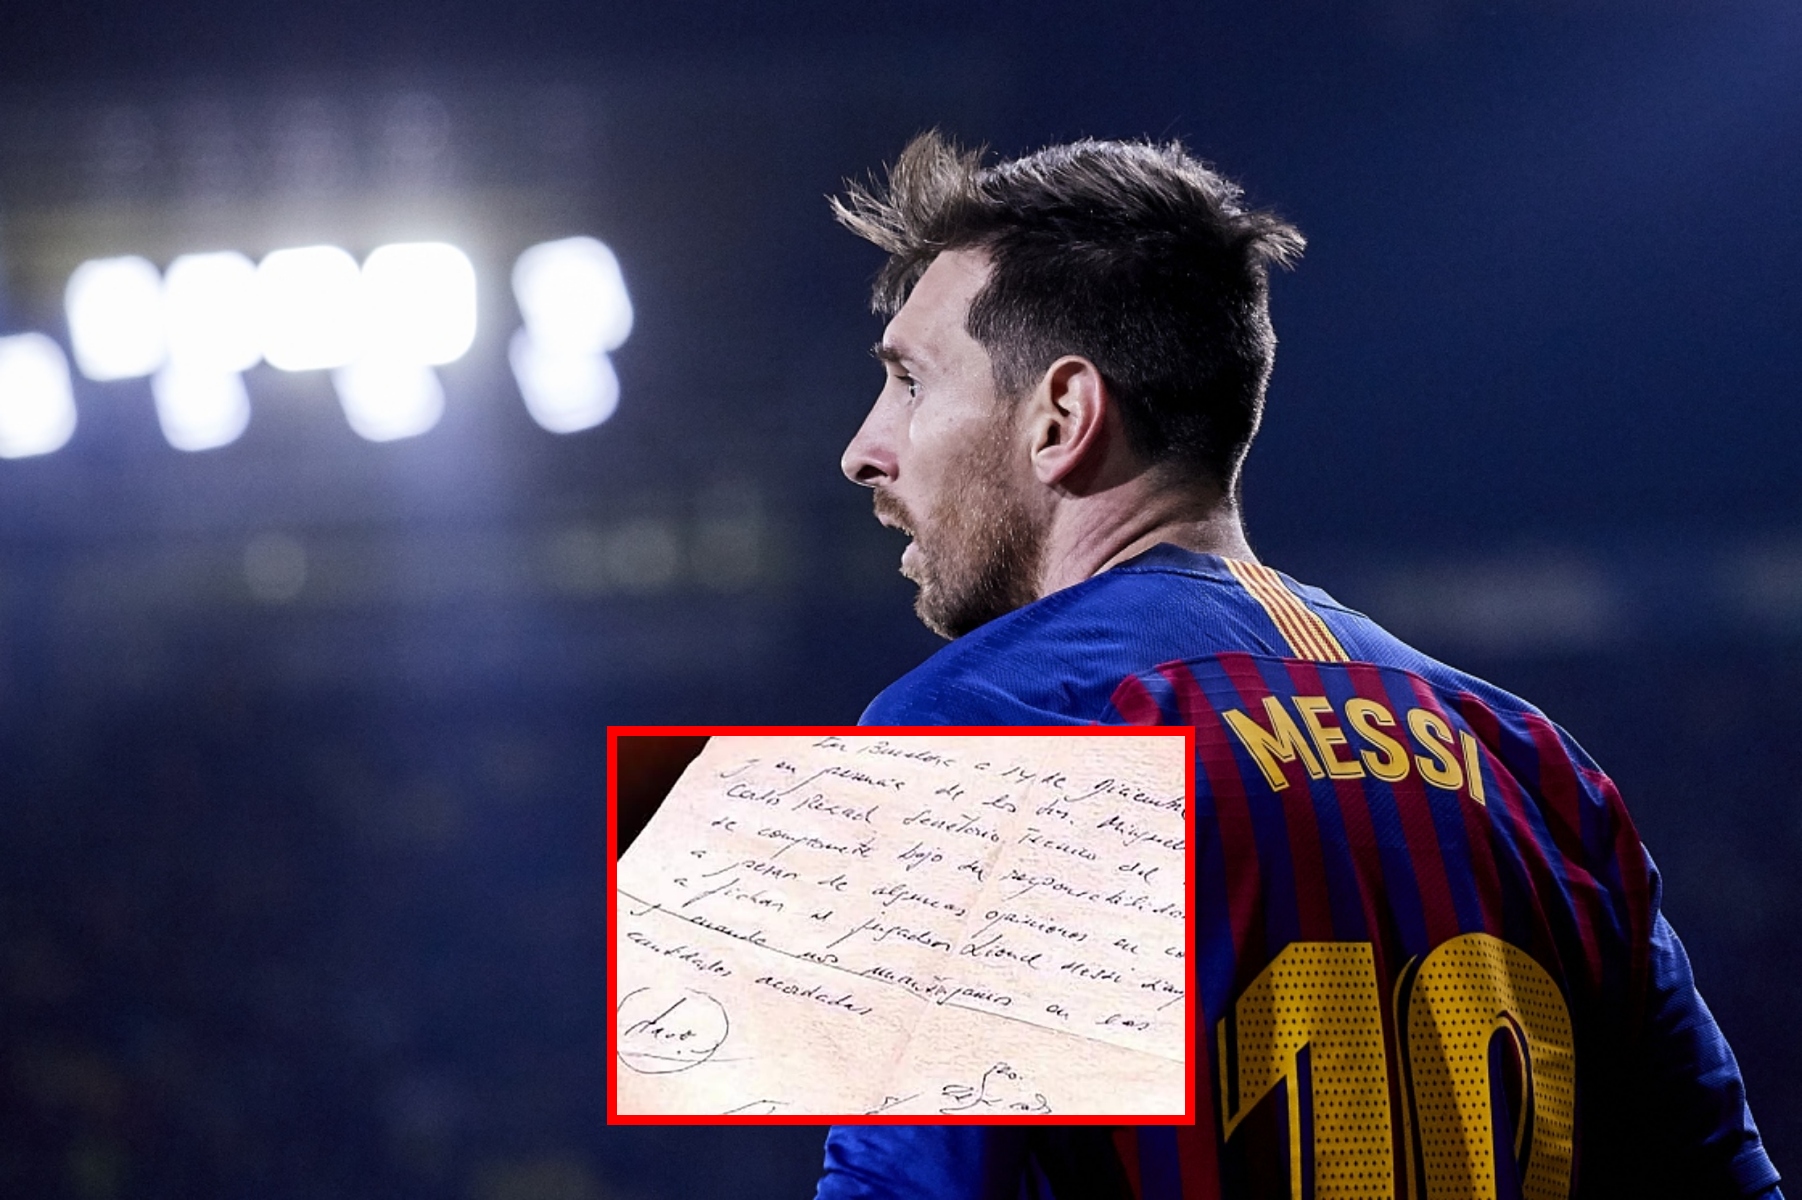 MESSI
10
En Barcelona a 14 de Diciembre
y en presencia de los Srs. Minguella
Carlos Rexach Secretario Técnico del
se compromete bajo su responsabilidad
a pesar de algunas opiniones en
a fichar al jugador Lionel Messi
y cuando nos mantengamos en las
cantidades acordadas